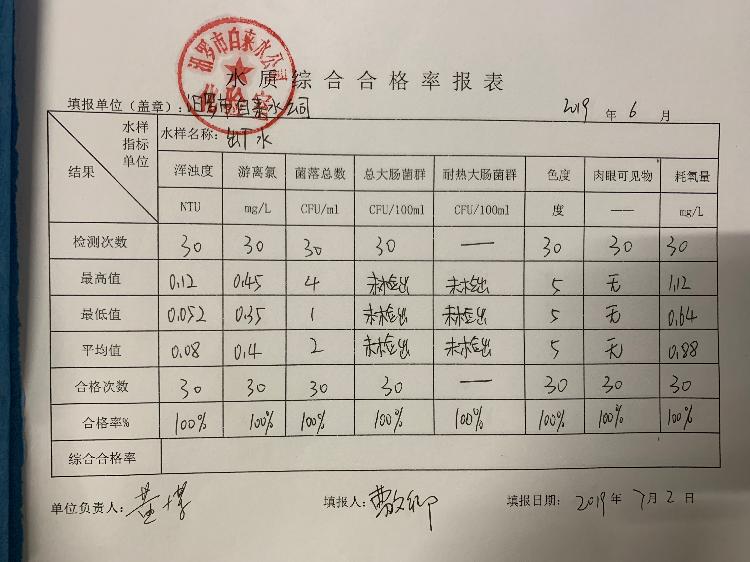 汨罗市自来水公司
化验室
水质综合合格率报表
填报单位（盖章）：汨罗市自来水公司 2019 年 6 月
水样 指标 单位 结果 水样名称：出厂水
浑浊度 游离氯 菌落总数 总大肠菌群 耐热大肠菌群 色度 肉眼可见物 耗氧量
NTU mg/L CFU/ml CFU/100ml CFU/100ml 度 —— mg/L
检测次数 30 30 30 30 — 30 30 30
最高值 0.12 0.45 4 未检出 未检出 5 无 1.12
最低值 0.052 0.35 1 未检出 未检出 5 无 0.64
平均值 0.08 0.4 2 未检出 未检出 5 无 0.88
合格次数 30 30 30 30 — 30 30 30
合格率% 100% 100% 100% 100% 100% 100% 100% 100%
综合合格率
单位负责人： 填报人： 填报日期： 2019 年 7月 2 日